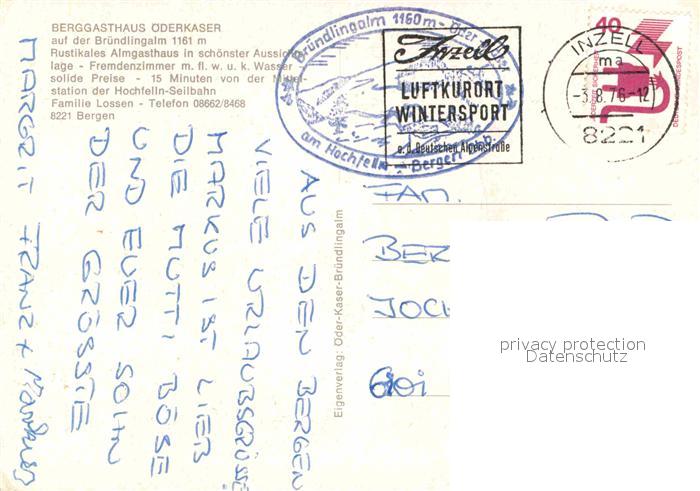 BERGGASTHAUS ÖDERKASER
auf der Bründlingalm 1161 m
Rustikales Almgasthaus in schönster Aussichts-
lage - Fremdenzimmer m. fl. w. u. k. Wasser
solide Preise - 15 Minuten von der Mittel-
station der Hochfelln-Seilbahn
Familie Lossen - Telefon 08662/8468
8221 Bergen
Bründlingalm 1160 m - Öder
am Hochfelln - Bergen
Inzell
LUFTKURORT
WINTERSPORT
a. d. Deutschen Alpenstraße
INZELL
ma
-3.8.76-12
8221
40
AUS DEN BERGEN
VIELE URLAUBSGRÜSSE
MARKUS IST LIEB
DIE MUTTI BÖSE
UND EUER SOHN
DER GRÖSSTE
MARGRIT FRANZ + Markus
Eigenverlag: Öder-Kaser-Bründlingalm
FAM.
BER
JOCH
privacy protection
Datenschutz